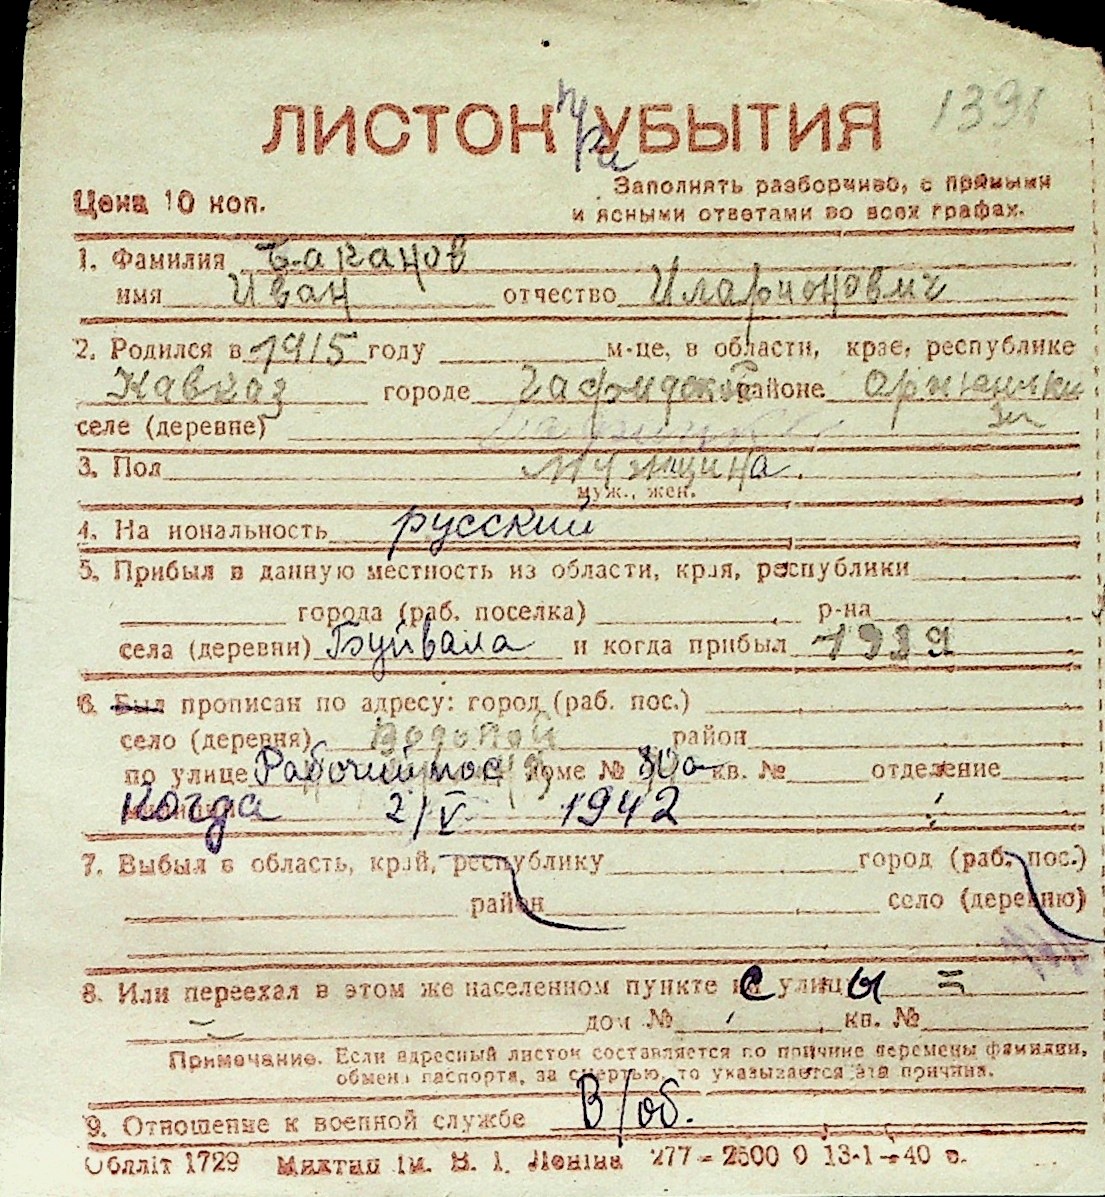 1391
ЛИСТОК УБЫТИЯ
Цена 10 коп.
Заполнять разборчиво, с прямыми
и ясными ответами во всех графах.
1. Фамилия Баканов
имя Иван отчество Иларионович
2. Родился в 1915 году м-це, в области, крае, республике
Кавказ городе районе
селе (деревне)
3. Пол мужщина.
муж., жен.
4. На иональность русский
5. Прибыл в данную местность из области, края, республики
города (раб. поселка) р-на
села (деревни) Буйвала и когда прибыл 1939
6. Был прописан по адресу: город (раб. пос.)
село (деревня) Водопой район
по улице Рабочий пос доме № 80а кв. № отделение
Когда 2/V 1942
7. Выбыл в область, край, республику город (раб. пос.)
район село (деревню)
8. Или переехал в этом же населенном пункте с улицы =
дом № кв. №
Примечание. Если адресный листок составляется по причине перемены фамилии,
обмена паспорта, за смертью, то указывается эта причина.
9. Отношение к военной службе В/об.
Облліт 1729 Миктип ім. В. І. Леніна 277 – 2500 0 13-1–40 в.